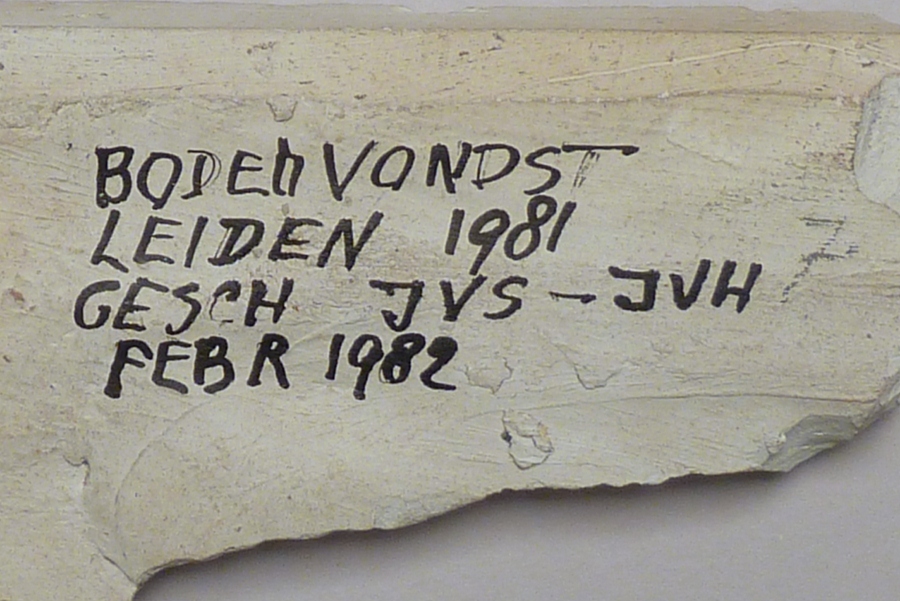 BODENVONDST
LEIDEN 1981
GESCH JVS - JVH
FEBR 1982